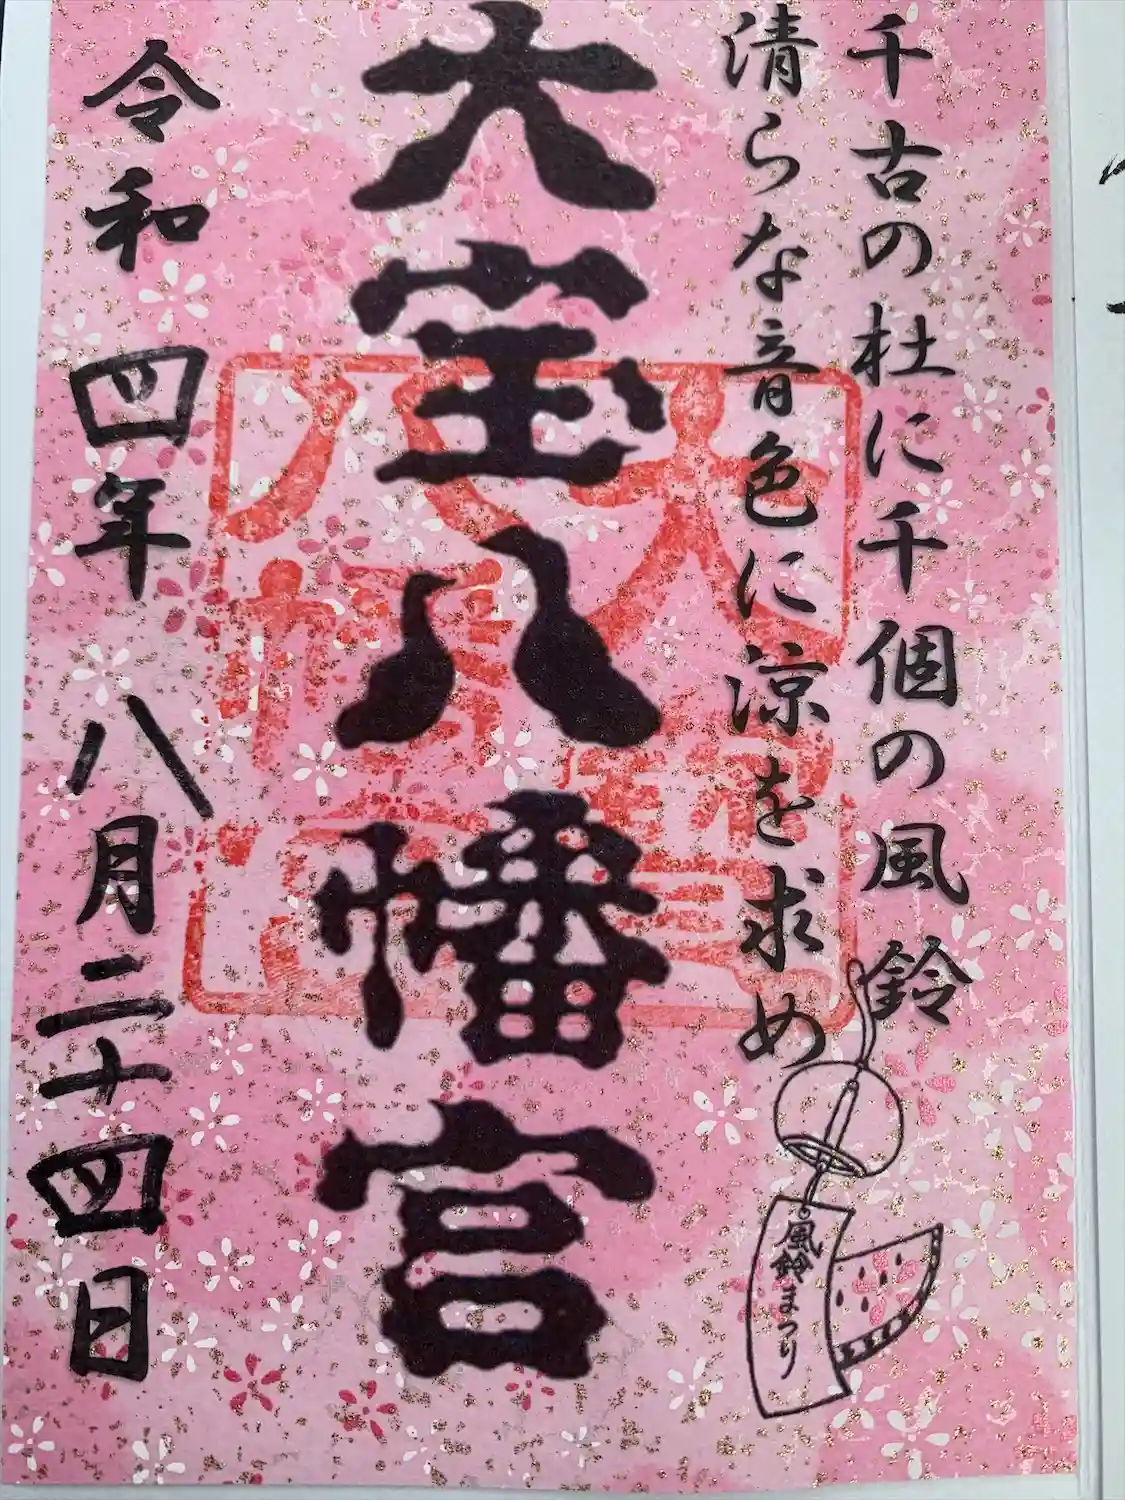 千古の杜に千個の風鈴
清らな音色に涼を求め
大宝八幡宮
令和四年八月二十四日
風鈴まつり